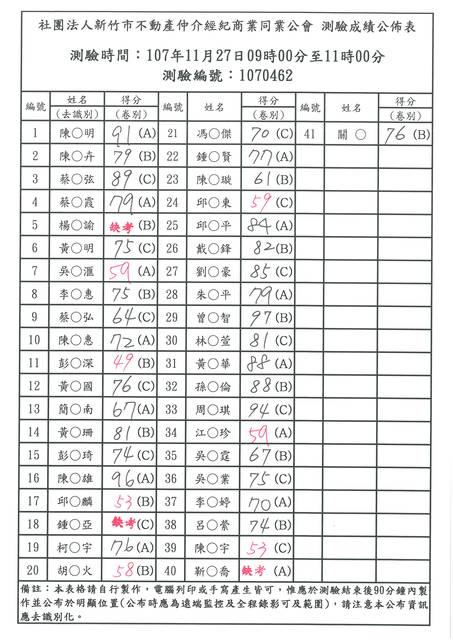 社團法人新竹市不動產仲介經紀商業同業公會 測驗成績公佈表
測驗時間：107年11月27日09時00分至11時00分
測驗編號：1070462
編號 姓名(去識別) 得分(卷別) 編號 姓名(去識別) 得分(卷別) 編號 姓名(去識別) 得分(卷別)
1 陳○明 91 (A) 21 馮○傑 70 (C) 41 關○ 76 (B)
2 陳○卉 79 (B) 22 鍾○賢 77 (A)
3 蔡○弦 89 (C) 23 陳○璇 61 (B)
4 蔡○霞 79 (A) 24 邱○東 59 (C)
5 楊○諭 缺考 (B) 25 邱○平 84 (A)
6 黃○明 75 (C) 26 戴○鋒 82 (B)
7 吳○滙 59 (A) 27 劉○豪 85 (C)
8 李○惠 75 (B) 28 朱○平 79 (A)
9 蔡○弘 64 (C) 29 曾○智 97 (B)
10 陳○惠 72 (A) 30 林○萱 81 (C)
11 彭○深 49 (B) 31 黃○華 88 (A)
12 黃○國 76 (C) 32 孫○倫 88 (B)
13 簡○南 67 (A) 33 周○琪 94 (C)
14 黃○珊 81 (B) 34 江○珍 59 (A)
15 彭○琦 74 (C) 35 吳○霆 67 (B)
16 陳○雄 96 (A) 36 吳○葉 75 (C)
17 邱○麟 53 (B) 37 李○婷 70 (A)
18 鍾○亞 缺考 (C) 38 呂○縈 74 (B)
19 柯○宇 76 (A) 39 陳○宇 53 (C)
20 胡○火 58 (B) 40 靳○喬 缺考 (A)
備註：本表格請自行製作，電腦列印或手寫產生皆可，惟應於測驗結束後90分鐘內製
作並公布於明顯位置(公布時應為遠端監控及全程錄影可及範圍)，請注意本公布資訊
應去識別化。